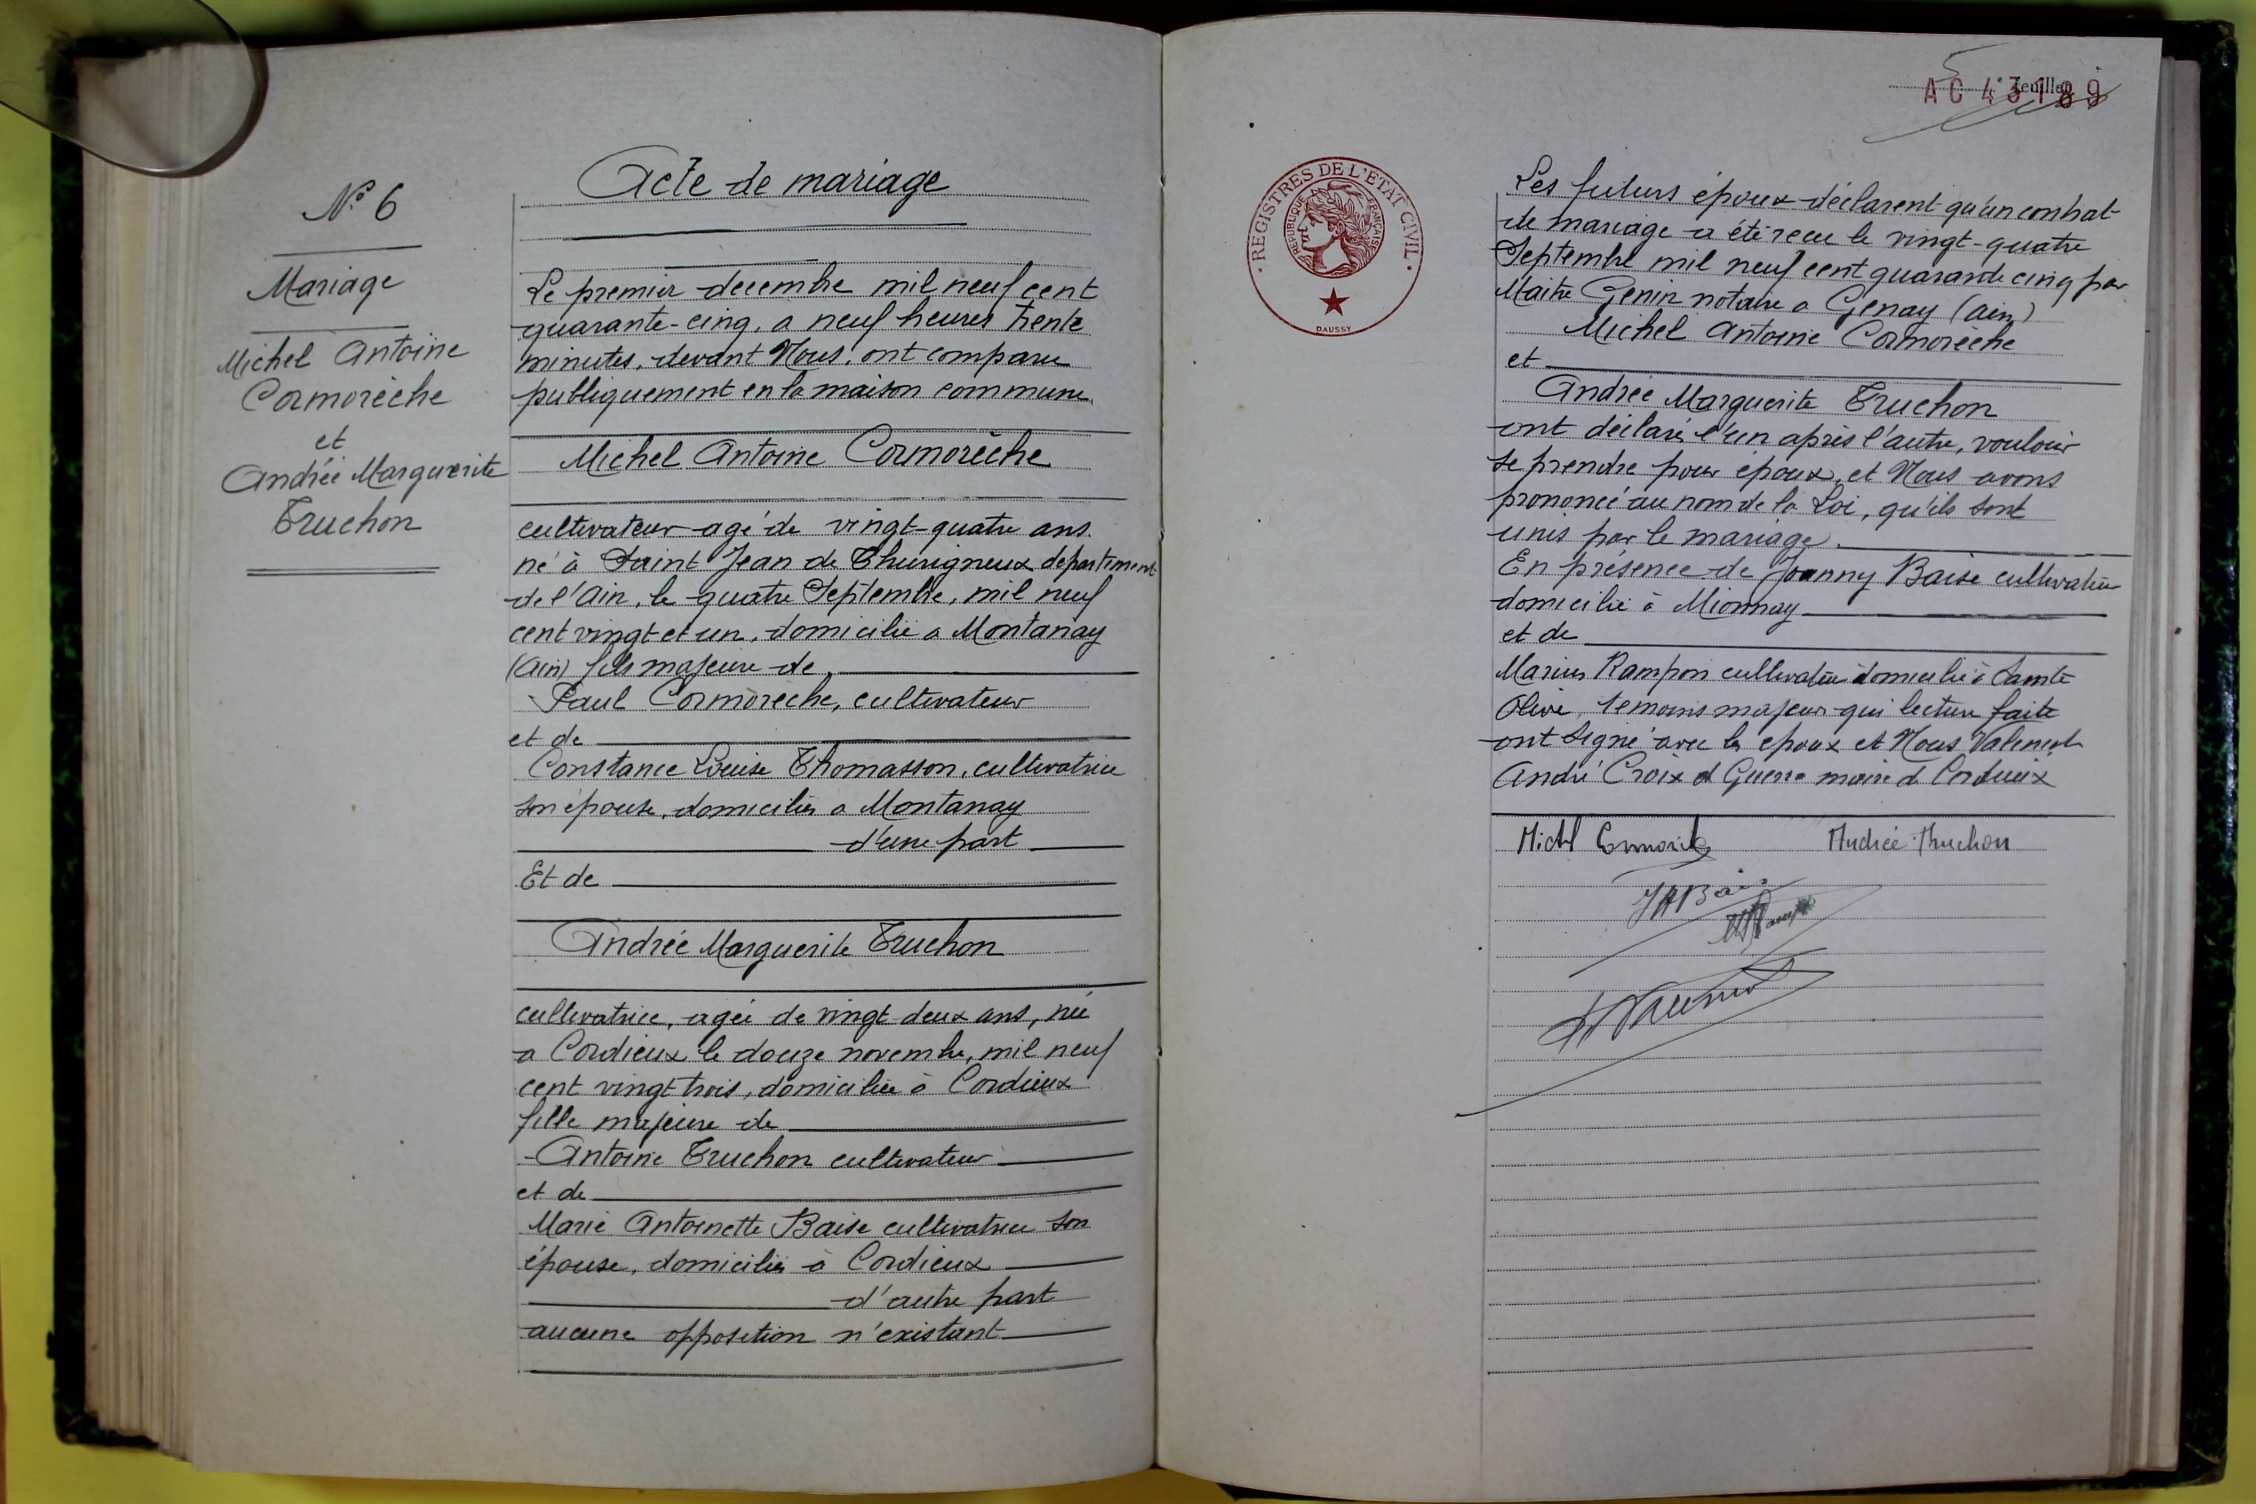 N° 6
Mariage
Michel Antoine
Cormorèche
et
Andrée Marguerite
Truchon
Acte de mariage
Le premier decembre mil neuf cent
quarante-cinq, a neuf heures trente
minutes, devant Nous, ont comparu
publiquement en la maison commune
Michel Antoine Cormorèche
cultivateur agé de vingt-quatre ans.
né à Saint Jean de Thurigneux departement
de l'Ain, le quatre Septembre, mil neuf
cent vingt et un, domicilié a Montanay
(Ain) fils majeure de
Paul Cormorèche, cultivateur
et de
Constance Louise Thomasson, cultivatrice
son épouse, domiciliés a Montanay
d'une part
Et de
Andrée Marguerite Truchon
cultivatrice, agée de vingt deux ans, née
a Cordieux le douze novembre, mil neuf
cent vingt trois, domiciliée à Cordieux
fille majeure de
Antoine Truchon cultivateur
et de
Marie Antoinette Baise cultivatrice son
épouse, domiciliés à Cordieux
d'autre part
aucune opposition n'existant
5e feuillet
AC 43189
REGISTRES DE L'ETAT CIVIL
REPUBLIQUE FRANÇAISE
DAUSSY
Les futurs époux déclarent qu'un contrat
de mariage a été recu le vingt-quatre
Septembre mil neuf cent quarante cinq par
Maitre Genin notaire a Genay (Ain)
Michel Antoine Cormorèche
et
Andrée Marguerite Truchon
ont déclaré l'un après l'autre, vouloir
se prendre pour époux, et Nous avons
prononcé au nom de la Loi, qu'ils sont
unis par le mariage.
En présence de Joanny Baise cultivateur
domicilié à Mionnay
et de
Marius Rampon cultivateur domicilié à Sainte
Olive, temoins majeurs qui lecture faite
ont signé avec les epoux et Nous Valensot
André Croix d Guerre maire d Cordieux
Michel Cormorèche Andrée Truchon
JABaise